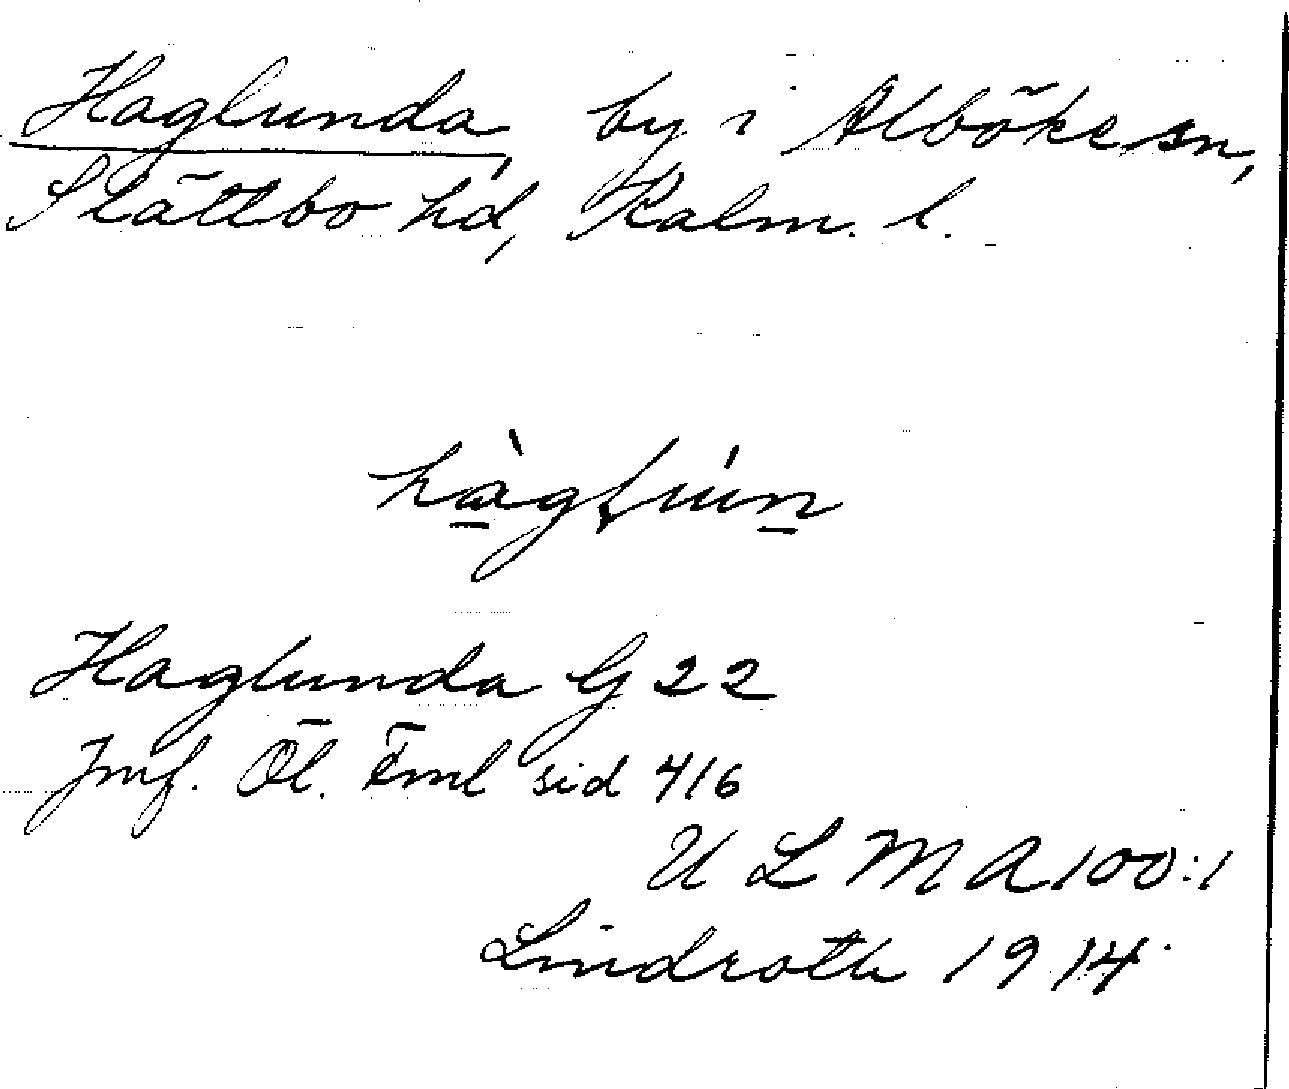 Haglunda, by i Alböke sn,
Slättbo hd, Kalm. l.
hàglún
Haglunda G 22
Jmf. Öl. Fml sid 416
U L M A 100:1
Lindroth 1914